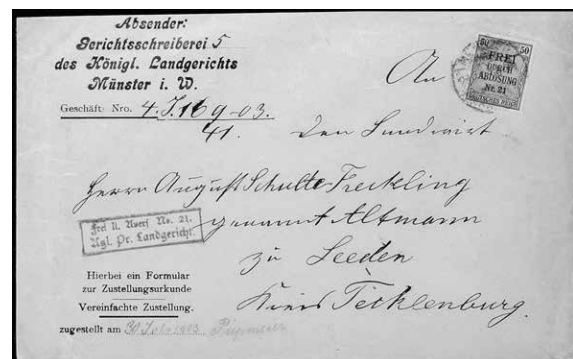 Absender:
Gerichtsschreiberei 5
des Königl. Landgerichts
Münster i. W.
Geschäft: Nro. 4. J. 169-03.
41.
50 50
FREI
DURCH
ABLÖSUNG
Nr. 21
DEUTSCHES REICH
An
den Landwirt
Herrn August Schulte-Freckling
genannt Altmann
zu Leeden
Kreis Tecklenburg.
Frei lt. Avers. No. 21.
Kgl. Pr. Landgericht.
Hierbei ein Formular
zur Zustellungsurkunde
Vereinfachte Zustellung.
zugestellt am 30 1903